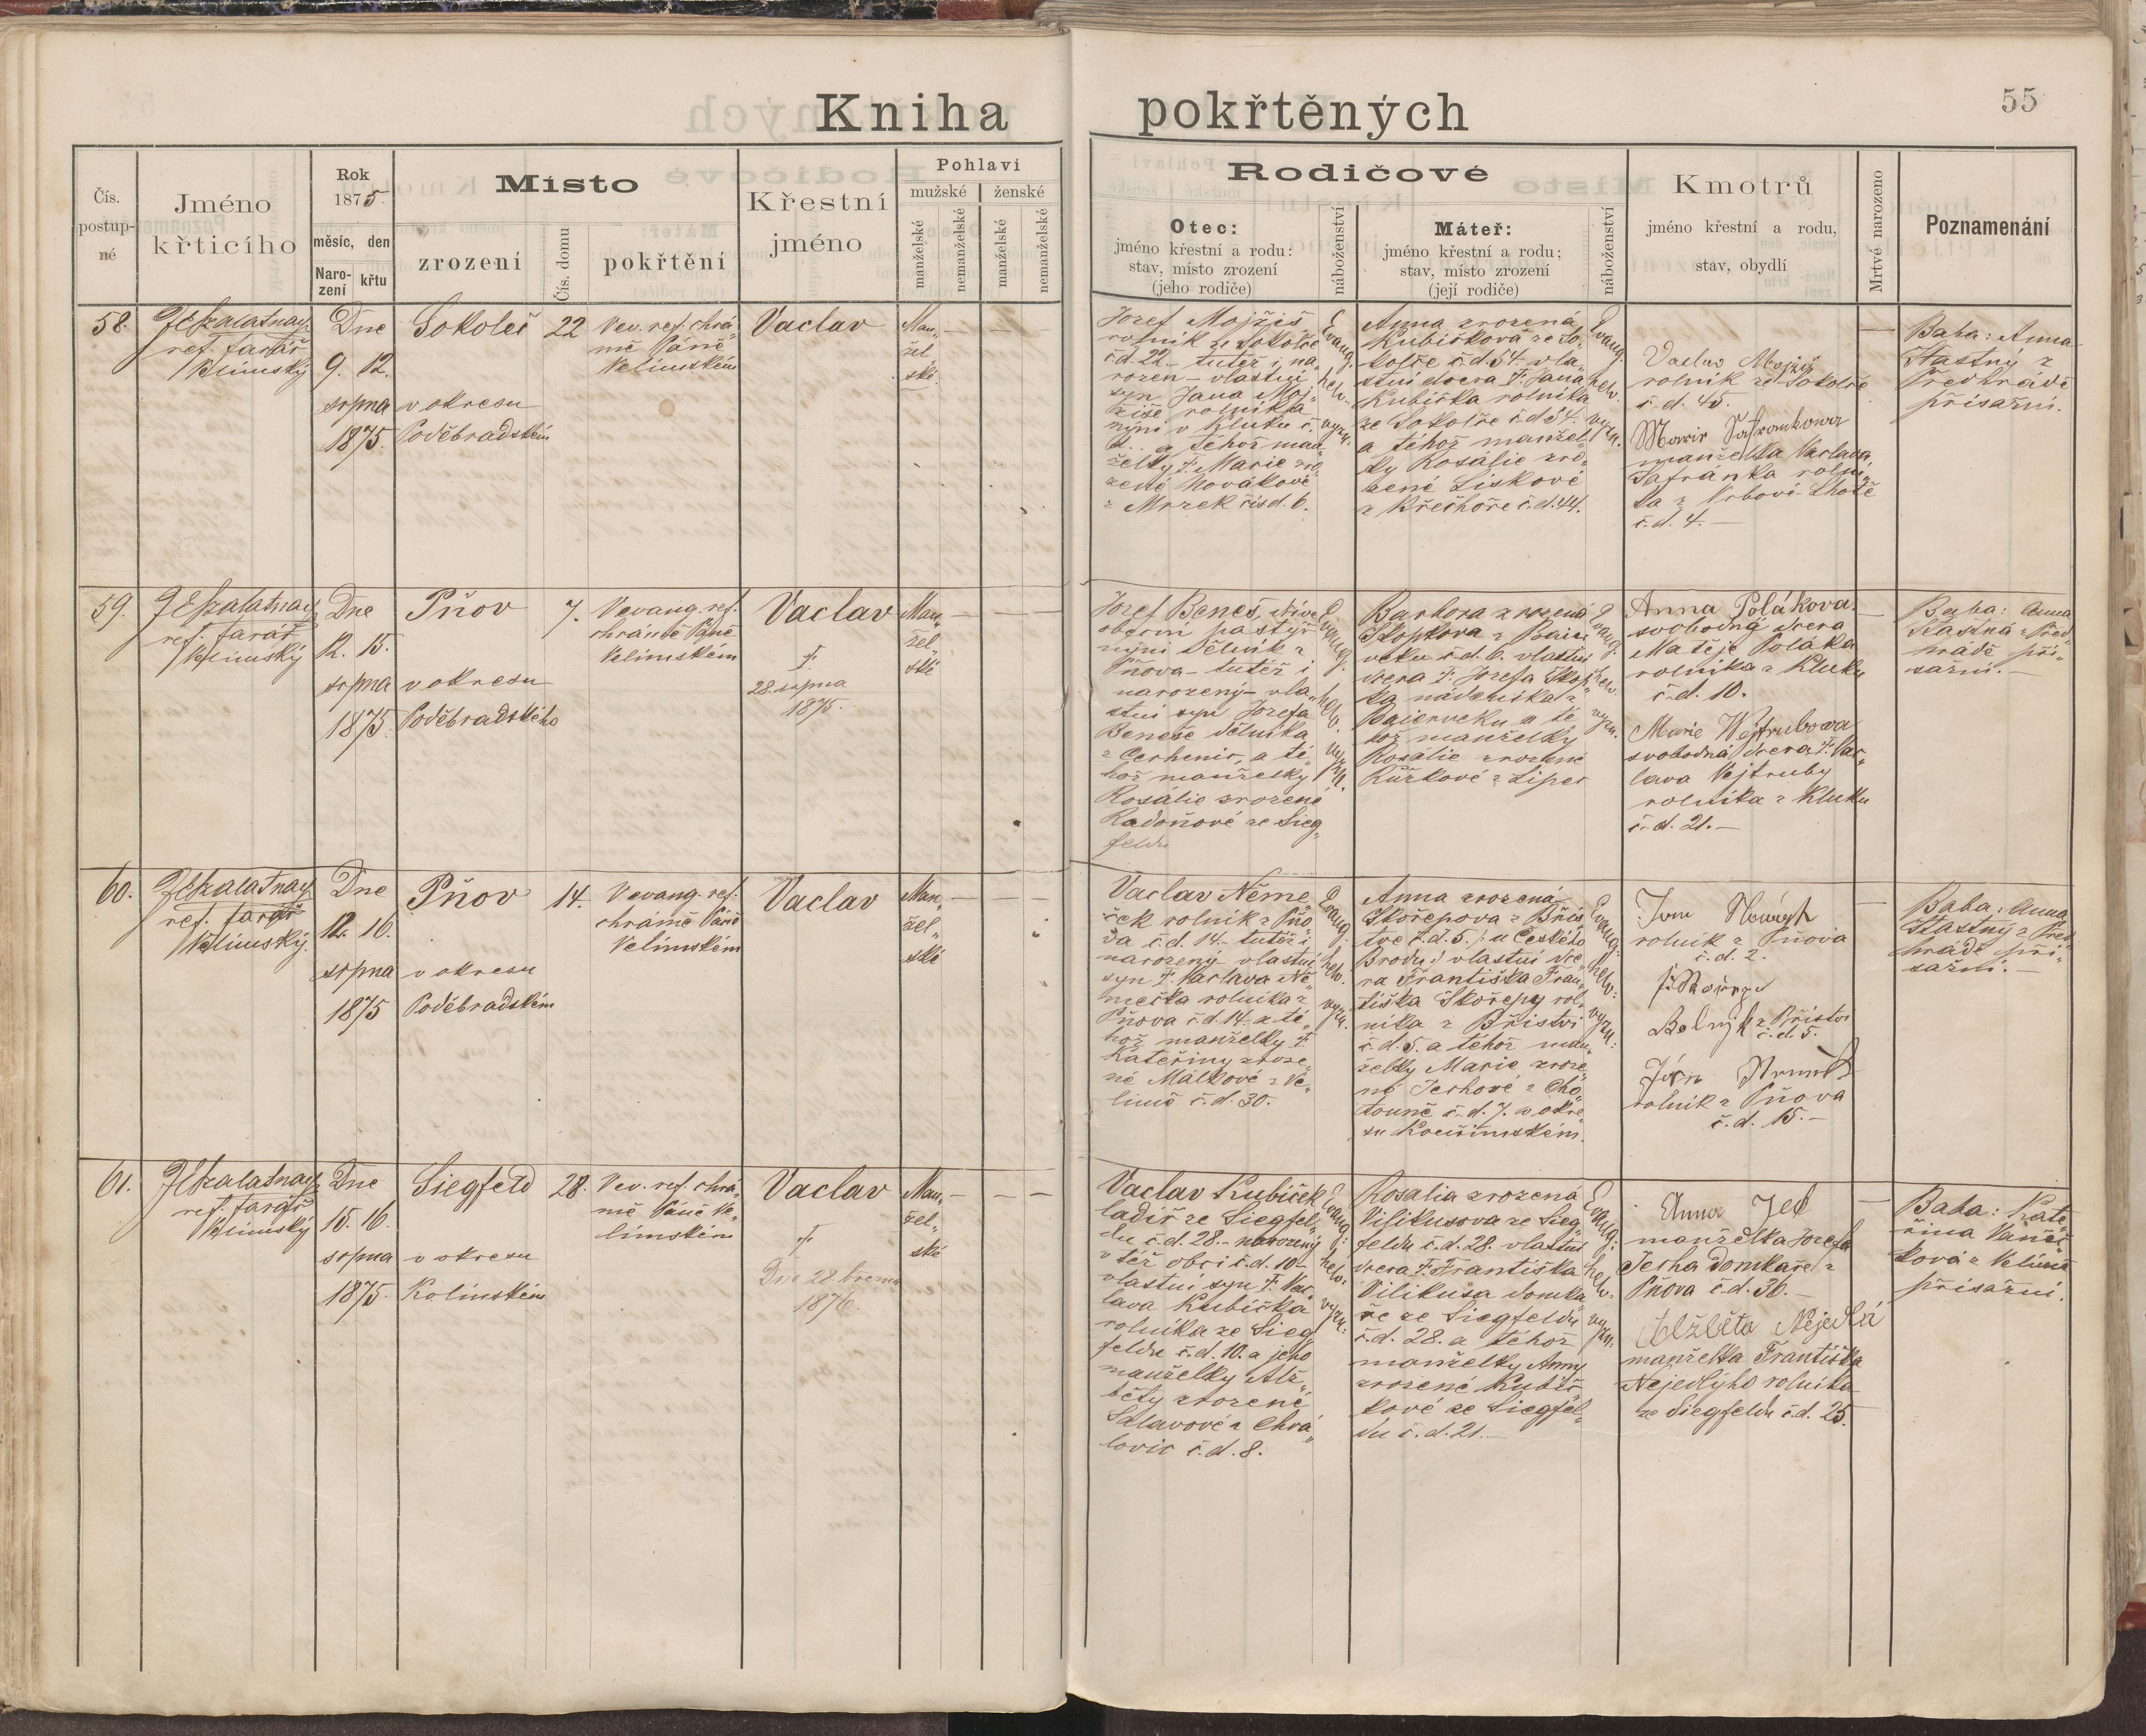 Kniha
pokřtěných
55
Čís.
postup-
né
Jméno
křticího
Rok
1875.
měsíc, den
Naro-
zení
křtu
Místo
zrození
Čís. domu
pokřtění
Křestní
jméno
Pohlaví
mužské
ženské
manželské
nemanželské
manželské
nemanželské
Rodičové
Otec:
jméno křestní a rodu:
stav, místo zrození
(jeho rodiče)
náboženství
Máteř:
jméno křestní a rodu;
stav, místo zrození
(její rodiče)
náboženství
Kmotrů
jméno křestní a rodu,
stav, obydlí
Mrtvé narozeno
Poznamenání
58.
ref. farář
Velimský
Dne
9. 12.
srpna
1875.
Sokoleč
v okresu
Poděbradském
22
Vev. ref. chrá„
mě Páně
Velimském
Vaclav
Man„
žel„
ské
Jozef Mojžíš
rolník ze Sokolče
č.d. 22 – tutéž i na„
rozen – vlastní
syn Jana Moj„
žíše rolníka
nyní v Kluku č.
d. .. a téhož man„
želky Marie zro„
zené Novákové
z Mrzek čísd. 6.
Evang.
helv.
vyzn.
Anna zrozená
Kubíčková ze So„
kolče č.d. 54. vla„
stní dcera Jana
Kubíčka rolníka
ze Sokolče č.d 54.
a téhož manžel„
ky Rosálie zro„
zené Liskové
z Křečhoře č.d. 44.
Evang.
helv.
vyzn.
Vaclav Mojžíš
rolník ze Sokolče
č. d. 45.
Marie Šafrankowa
manželka Vaclava
Šafránka rolní„
ka z Vrbové Lhoty
č. d. 4. –
Baba: Anna
Šťastný z
Předhrádě
přísažní.
59.
ref. farář
Velimský
Dne
12. 15.
srpna
1875.
Pňov
v okresu
Poděbradského
7.
Vevang. ref.
chrámě Páně
Velimském
Vaclav
28. srpna
1875.
Man„
žel„
ské
Jozef Beneš, dříve
obecní pastýř
nyní dělník z
Pňova – tutéž i
narozený – vla„
stní syn Jozefa
Beneše dělníka
z Cerhenic, a té„
hož manželky
Rosálie zrozené
Radoňové ze Sieg„
feldu
Evang.
helv.
vyzn.
Barbora zrozená
Škopkova z Baier
veku č.d. 6. vlastní
dcera Jozefa Škop„
ka nádeníka z
Baierveku a té„
hož manželky
Rosálie zrozené
Kůrkové z Lipec
Evang.
helv.
vyzn.
Anna Polákova.
svobodná dcera
Matěje Poláka
rolníka z Kluku
č.d. 10.
Marie Wejtrubowa
svobodná dcera Vác„
lava Vejtruby
rolníka z Kluku
č. d. 21. –
Baba: Anna
Šťastná z Před„
hrádě pří„
sažní. –
60.
ref. farář
Velimský.
Dne
12. 16.
srpna
1875
Pňov
v okresu
Poděbradském
14.
Vevang. ref.
chrámě Páně
Velimském
Vaclav
Man„
žel„
ské
Vaclav Něme„
ček rolník z Pňo„
va č.d. 14. – tutéž i
narozený – vlastní
syn Vaclava Ně„
mečka rolníka z
Pňova č.d. 14. a té„
hož manželky
Kateřiny zroze„
né Málkové z Ve„
limě č. d. 30.
Evang.
helv.
vyzn.
Anna zrozená
Skořepova z Břís„
tve č.d. 5. /: u Českého
Brodu :/ vlastní dce„
ra Františka Fran„
tiška Skořepy rol„
níka z Břístvi
č. d. 5. a téhož man„
želky Marie zroze„
né Jechové z Cho„
touně č. d. 7. v okre„
su Kouřimském.
Evang.
helv:
vyzn:
rolník z Pňova
č. d. 2.
z Břístvi
č. d. 5.
rolník z Pňova
č. d. 15. –
Baba: Anna
Šťastný z Před„
hrádě pří„
sažní. –
61.
ref. farář
Velimský
Dne
15. 16.
srpna
1875.
Siegfeld
v okresu
Kolínském
28.
Vev. ref. chrá„
mě Páně Ve„
limském
Vaclav
Dne 28 března
1876.
Man„
žel„
ské
Vaclav Kubíček
ze Siegfel„
du č.d. 28. – narozený
v též obci č.d. 10 –
vlastní syn Vác„
lava Kubíčka
rolníka ze Sieg„
feldu č. d. 10. a jeho
manželky Alž„
běty zrozené
Salavové z Chrá„
lovic č. d. 8.
Evang:
helv:
vyzn:
Rosalia zrozená
Vilikusova ze Sieg„
feldu č. d. 28. vlastní
dcera Františka
Vilikusa domká„
ře ze Siegfeldu
č. d. 28. a téhož
manželky Anny
zrozené Kubíč„
kové ze Siegfel„
du č. d. 21. –
Evang:
helv.
vyzn:
Anna Jech
manželka Jozefa
Jecha domkáře z
Pňova č. d. 36. –
Alžběta Nejedlá
manželka Františka
Nejedlýho rolníka
ze Siegfeldu č.d. 25.
Baba: Kate„
řina Vaníč„
ková z Velimě
přísažní.